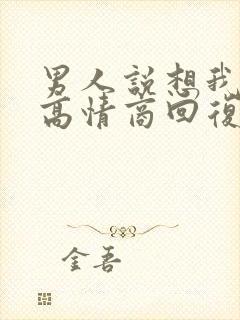 男人說想我
高情商回復
金吾